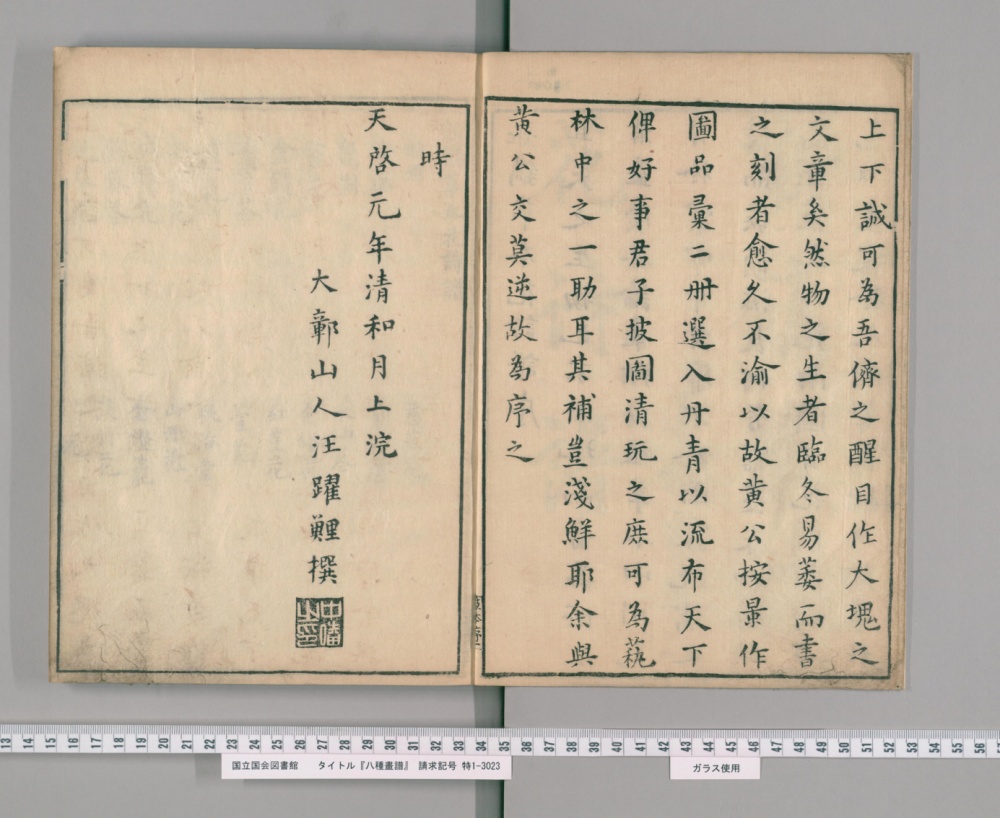 上下誠可為吾儕之醒目作大塊之
文章矣然物之生者臨冬易萎而書
之刻者愈久不渝以故黄公按景作
圖品彙二冊選入丹青以流布天下
俾好事君子披圖清玩之庶可為藝
林中之一助耳其補豈淺鮮耶余與
黄公交莫逆故為序之
時
天啓元年清和月上浣
大鄣山人汪躍鯉撰
13 14 15 16 17 18 19 20 21 22 23 24 25 26 27 28 29 30 31 32 33 34 35 36 37 38 39 40 41 42 43 44 45 46 47 48 49 50 51 52 53 54 55 56 57
国立国会図書館 タイトル『八種畫譜』 請求記号 特1-3023
ガラス使用